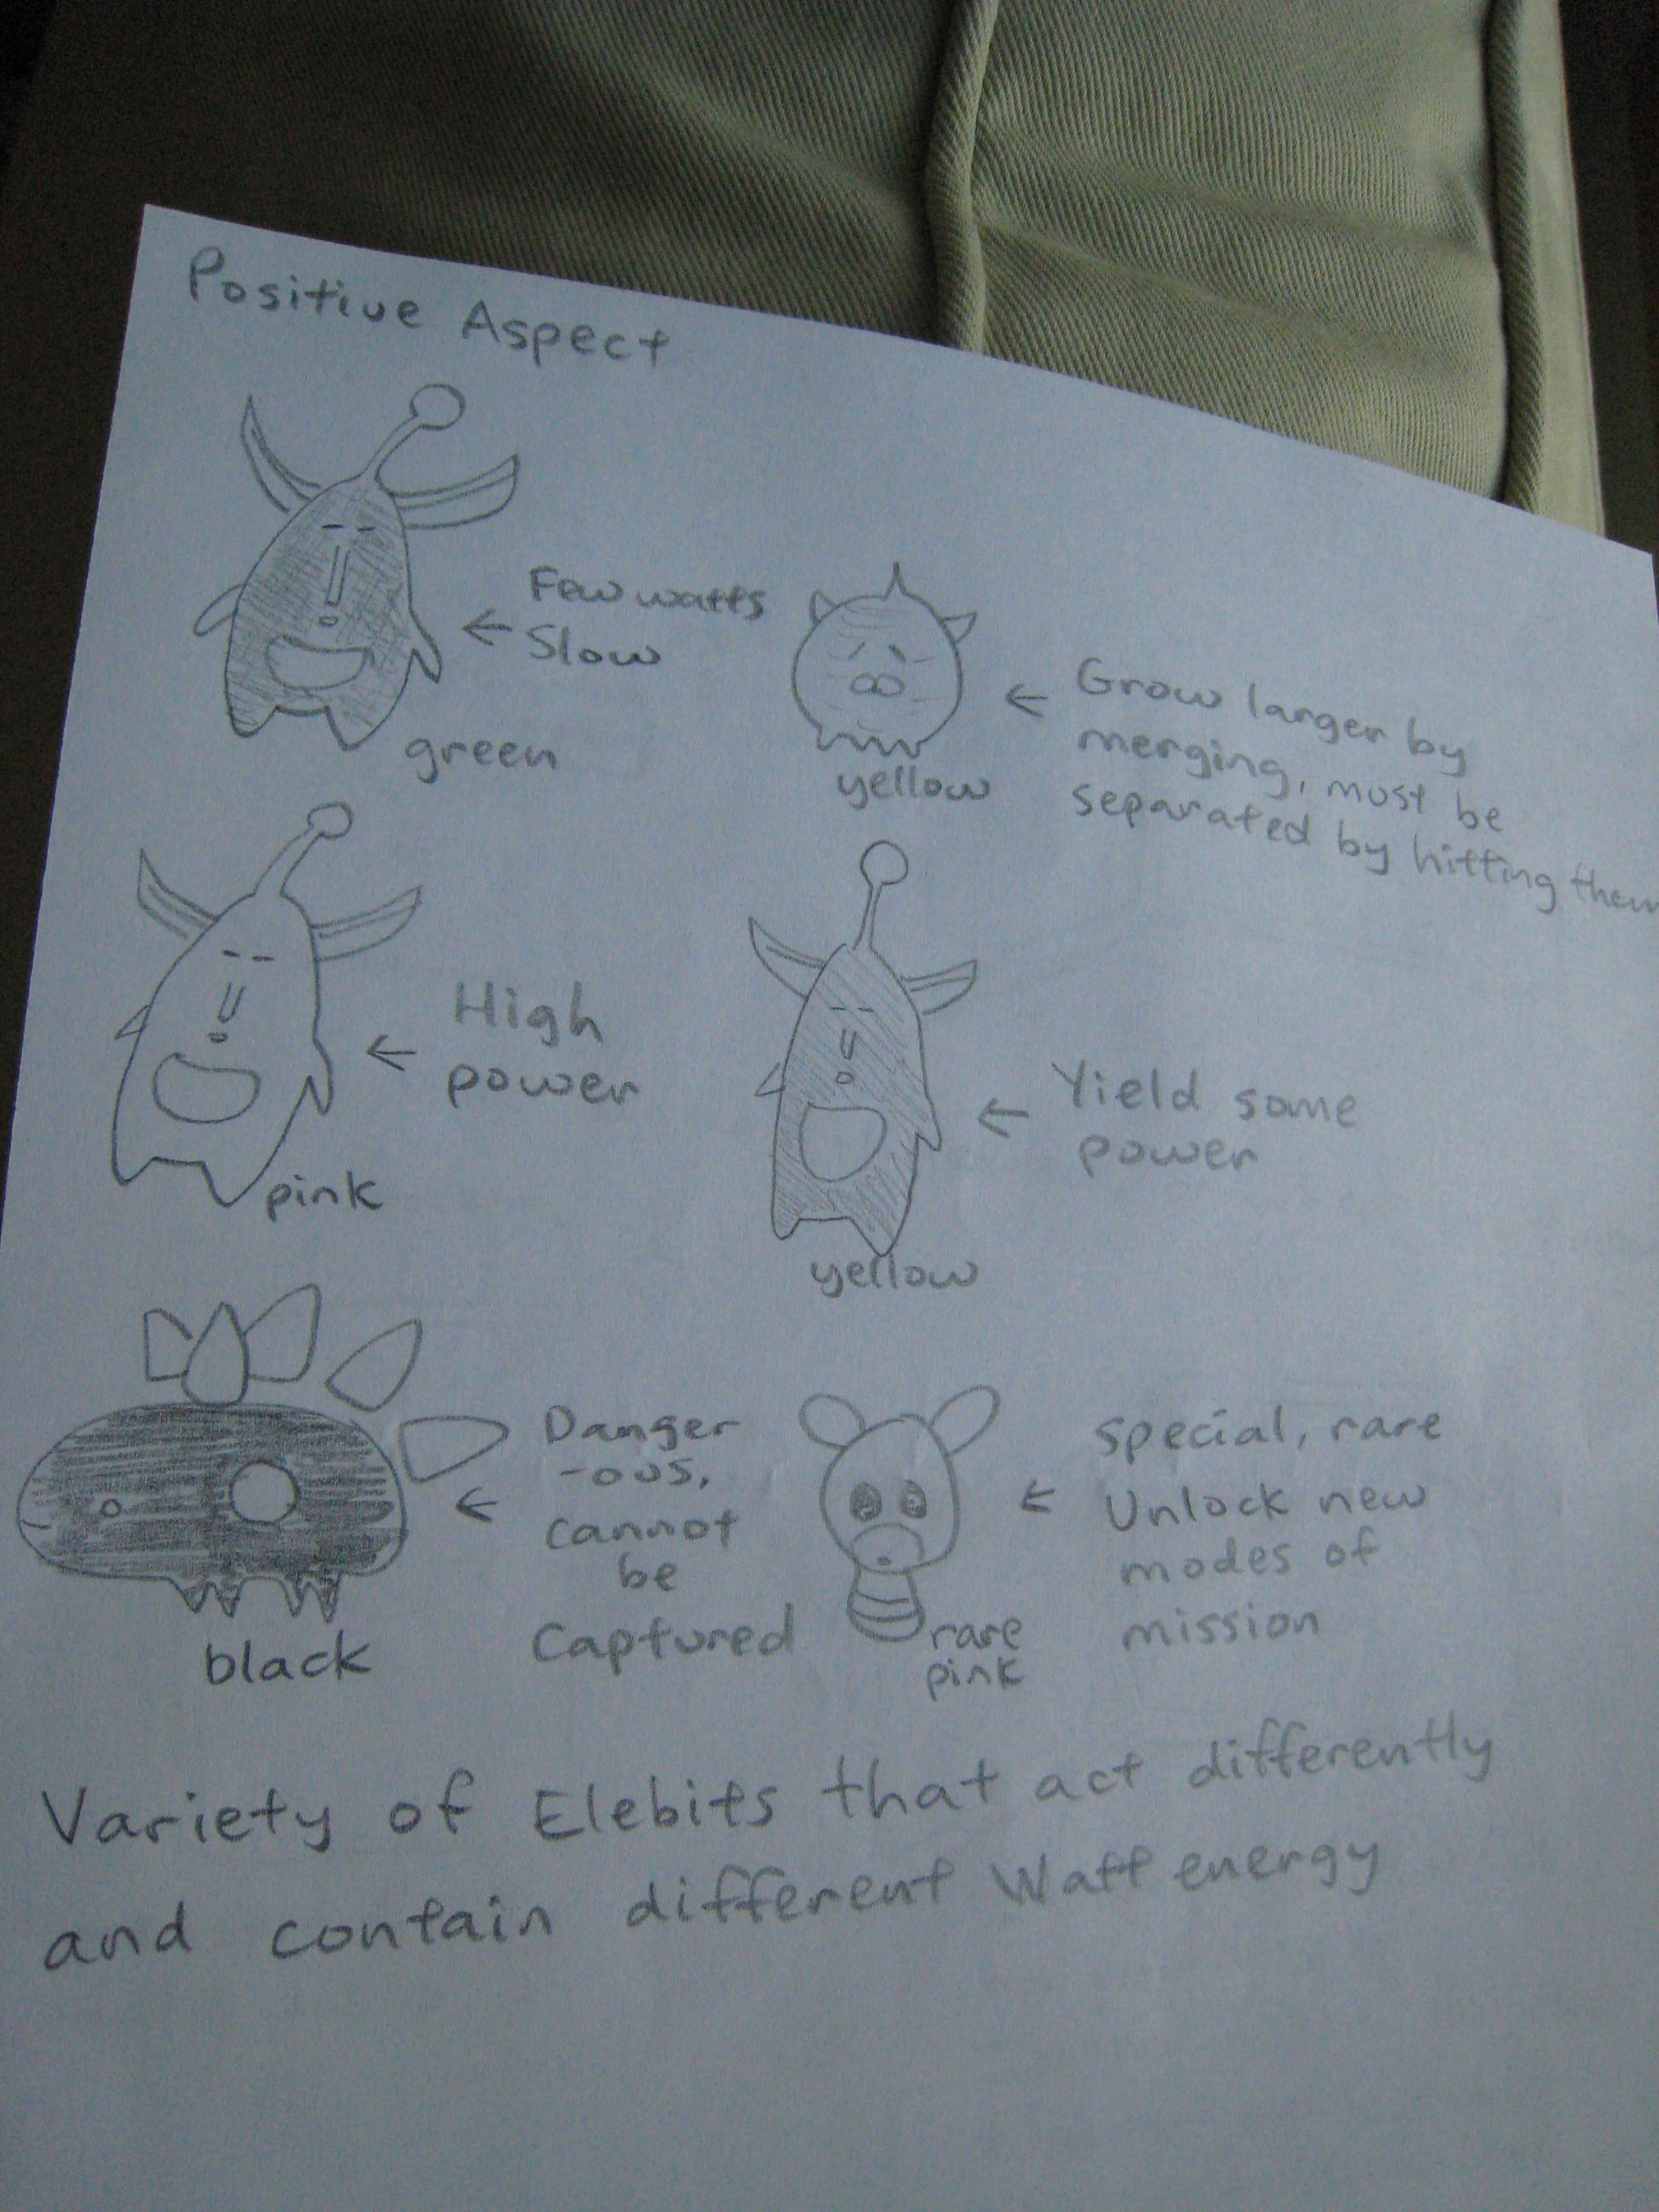 Positive Aspect
Few watts
Slow
green
Grow larger by
merging, must be
separated by hitting them
yellow
High
power
pink
Yield some
power
yellow
Danger
-ous,
cannot
be
Captured
black
special, rare
Unlock new
modes of
mission
rare
pink
Variety of Elebits that act differently
and contain different Watt energy